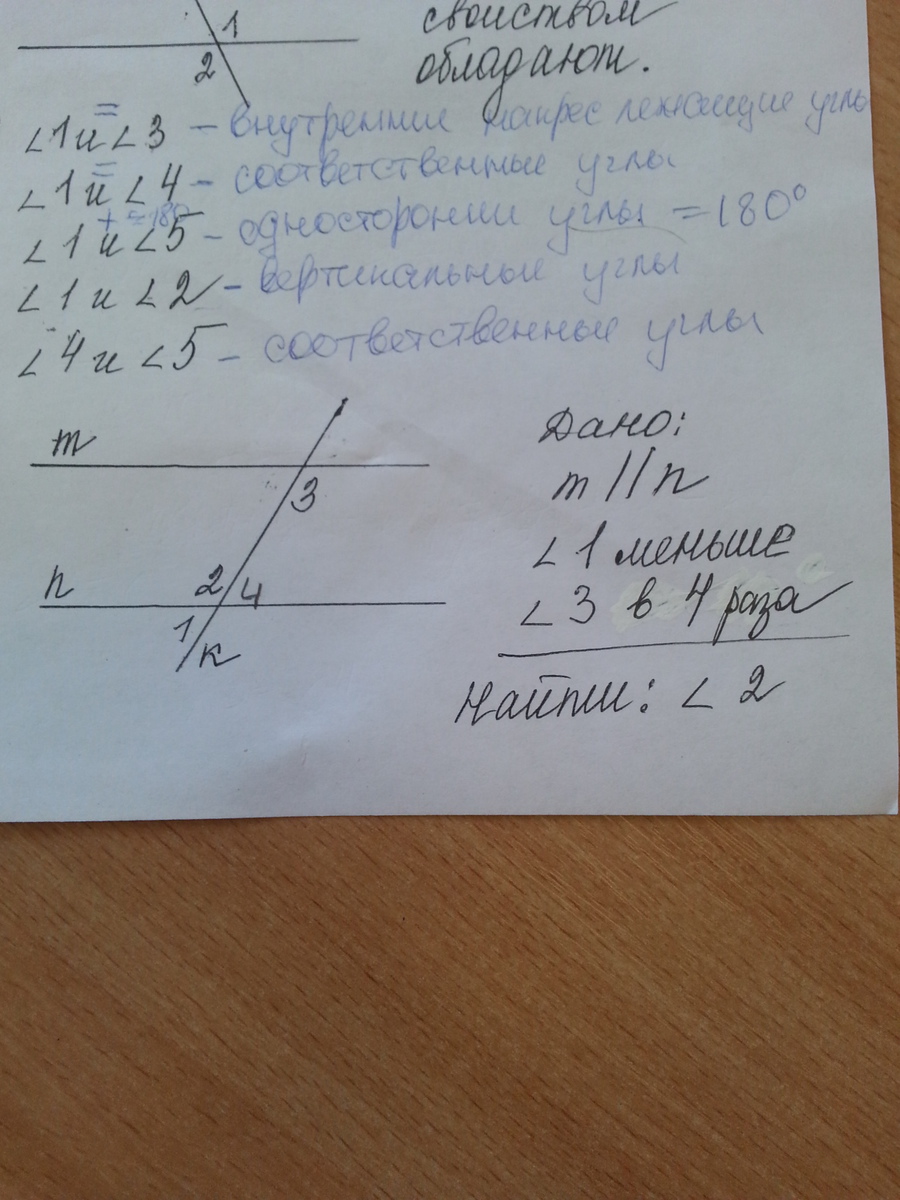 свойством
1
2
обладают.
∠1 и ∠3 – внутренние накрест лежащие углы
=
∠1 и ∠4 – соответственные углы
=
∠1 и ∠5 – односторонии углы = 180°
+ = 180
∠1 и ∠2 – вертикальные углы
∠4 и ∠5 – соответственные углы
m
3
n
2
4
1
к
Дано:
m || n
∠1 меньше
∠3 в 4 раза
Найти: ∠2